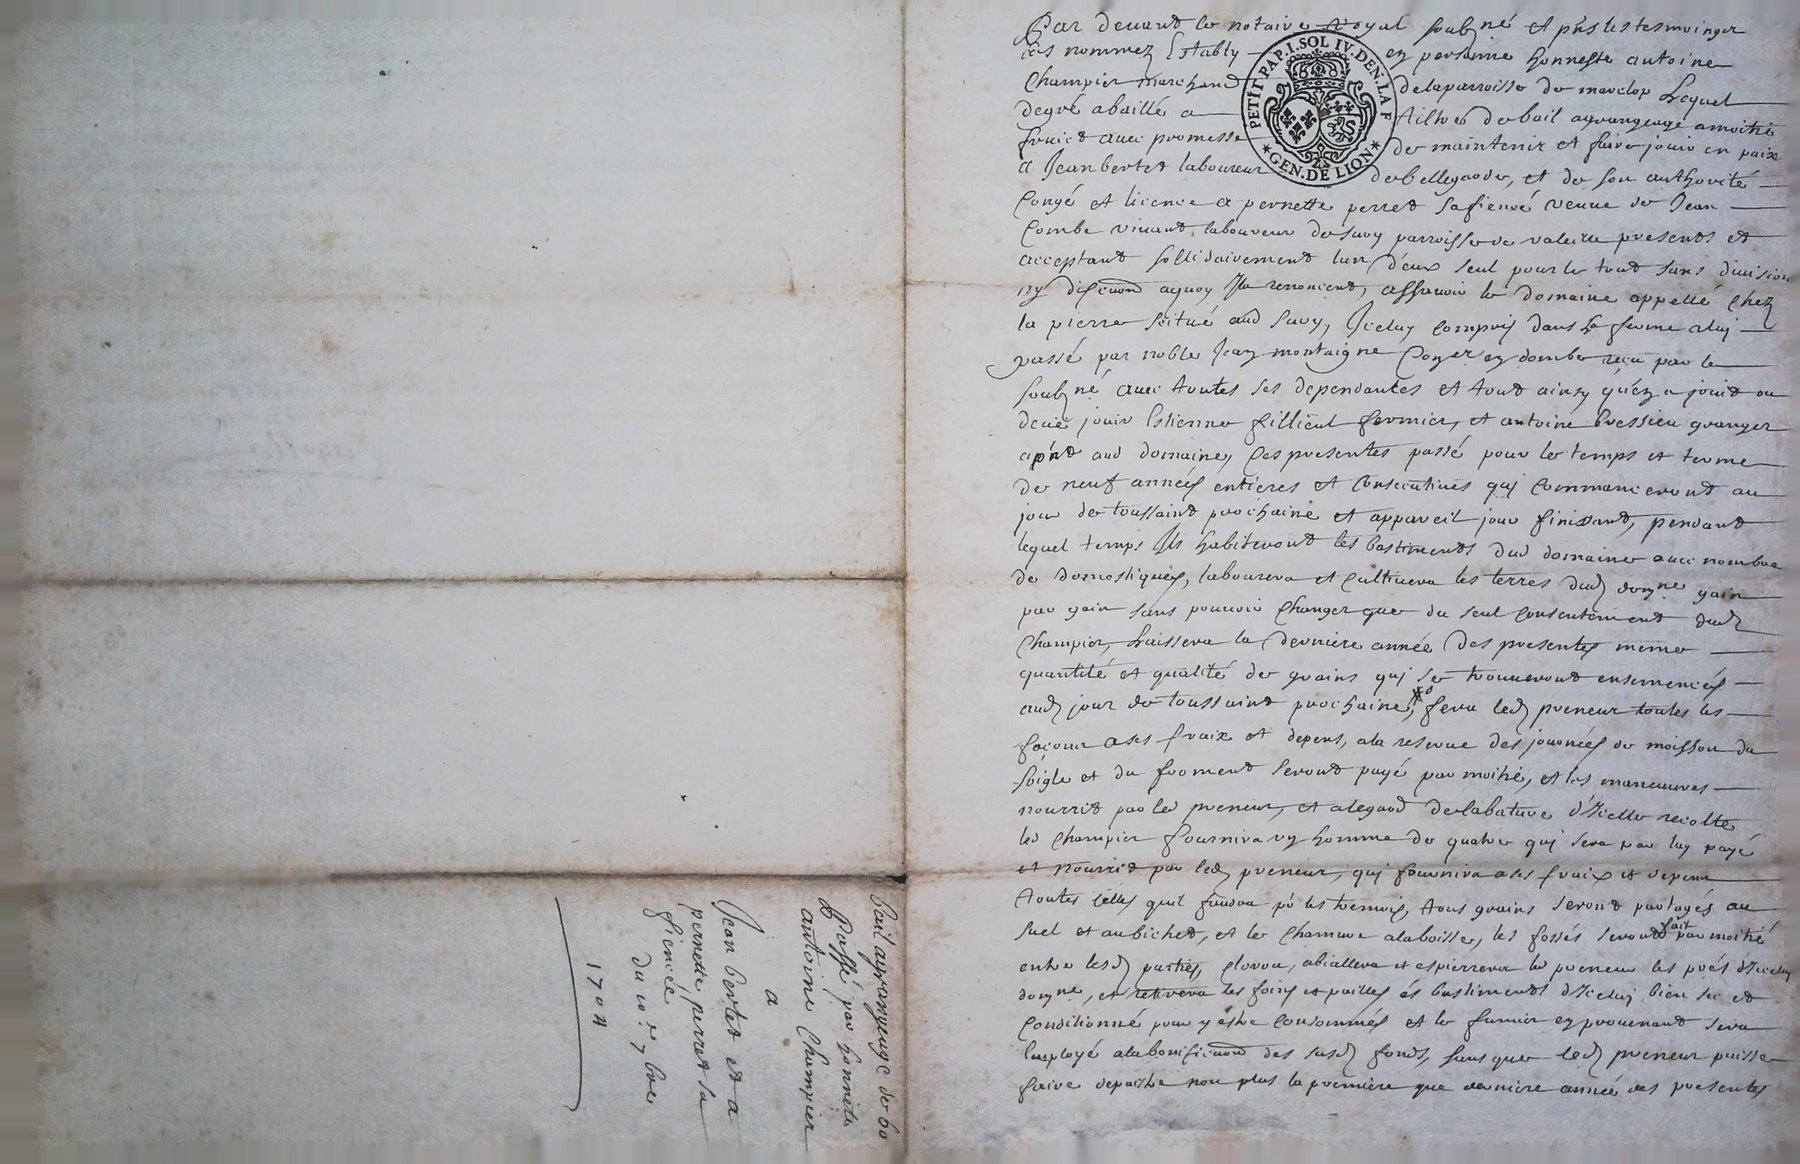 Par devant le notaire Royal soubzné et pnts les tesmoingz
cës nommez Estably en personne honneste antoine
Champier marchand delaparroisse de marclop Lequel
degré abaillé a tiltre debail agrangeage amoitié
fruict avec promesse de maintenir et faire jouir en paix
a Jean bertet laboureur debellegarde, et de son authorité
Congé et licence a pernette perret safiencé veuve de Jean
Combe vivant laboureur de savy parroisse de valeille presents et
acceptant sollidairement lun d'eux seul pour le tout sans division
ny discuon aquoy Ils renoncent, assavoir le domaine appellé Chez
la pierre scitué aud savy, Iceluy Compris dans la ferme aluy
passé par noble Jean montaigne Coner en dombe reçu par le
soubzné avec toutes ses dependantes et tout ainsy qu'en a jouit ou
deue jouir Estienne fillieul fermier, et antoine bressieu granger
apñt aud domaine, Ces presentes passé pour le temps et terme
de neuf années entieres et Consecutives qui Commanceront au
jour de toussaint prochaine et appareil jour finissant, pendant
lequel temps Ils habiteront les bastiments dud domaine avec nombre
de domestiques, labourera et Cultivera les terres dud domne gain
par gain sans pouvoir Changer que du seul Consentement dud
Champier, Laissera la derniere année des presentes meme
quantité et qualité de grains qui se trouveront ensemencés
aud jour de toussaint prochaine, fera led preneur toutes les
façons ases fraix et depens, ala reserve des journées de moisson du
soigle et du froment seront payé par moitié, et les maneuvres
nourrit par led preneur, et alegard delabature d'Icelle recolte
led Champier fournira un homme de quatre qui sera par luy payé
et nourrit par led preneur, qui fournira ases fraix et depens
toutes celles quil faudra pr les tremois, tous grains seront partagés au
suel et aubichet, et le Chanvre alaboisse, les fossés seront fait par moitié
entre lesd parties, Clorra, abiallera et espierrera le preneur les prés d'Iceluy
domne, et retirera les foins et pailles és bastiments d'Iceluy bien sec et
Conditionné pour y estre Consommés et le fumier en provenant sera
Employé alabonificaon des susd fonds, sans que led preneur puisse
faire depaitre non plus la premiere que derniere année des presentes
PETIT PAP. I. SOL IV. DEN. LA F
GEN. DE LION
bail agrangeage de 60
Passé par honnete
antoine Champier
a
Jean bertet et a
pernette perret sa
fiencée
du 10e 7bre
1704